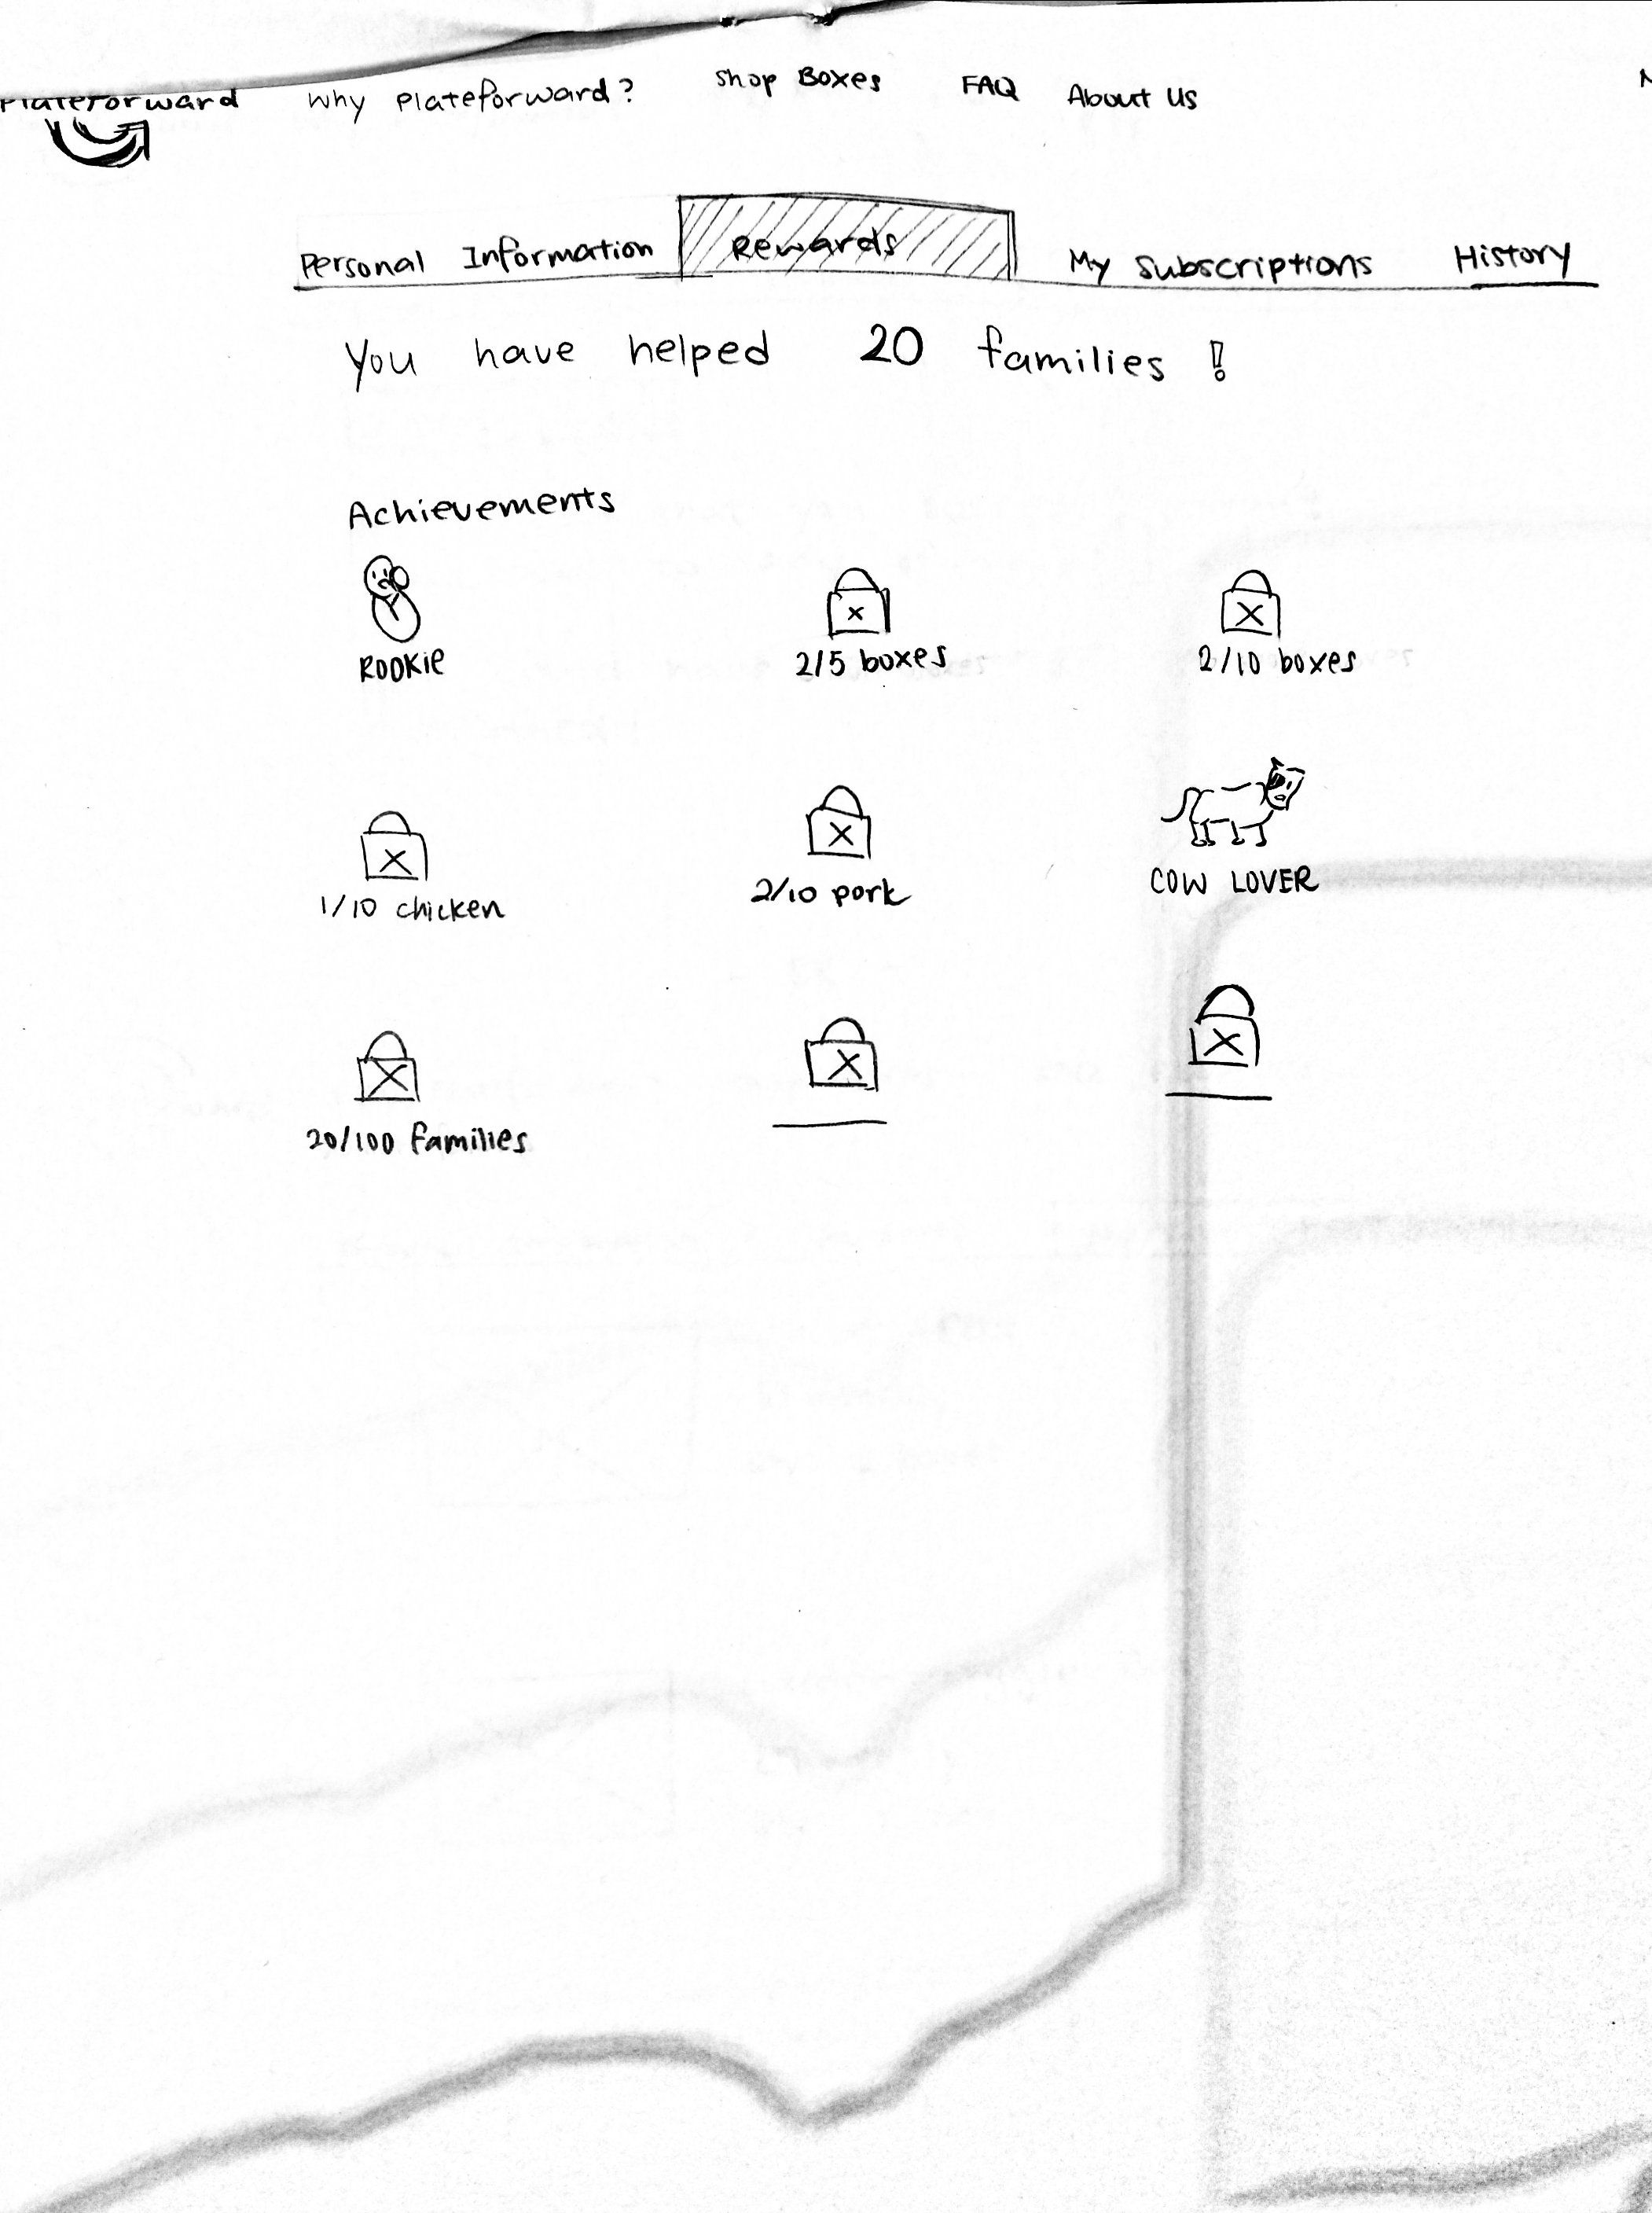 Plateforward Why Plateforward? Shop Boxes FAQ About Us
Personal Information Rewards My Subscriptions History
You have helped 20 families !
Achievements
ROOKIE 2/5 boxes 2/10 boxes
1/10 chicken 2/10 pork COW LOVER
20/100 families